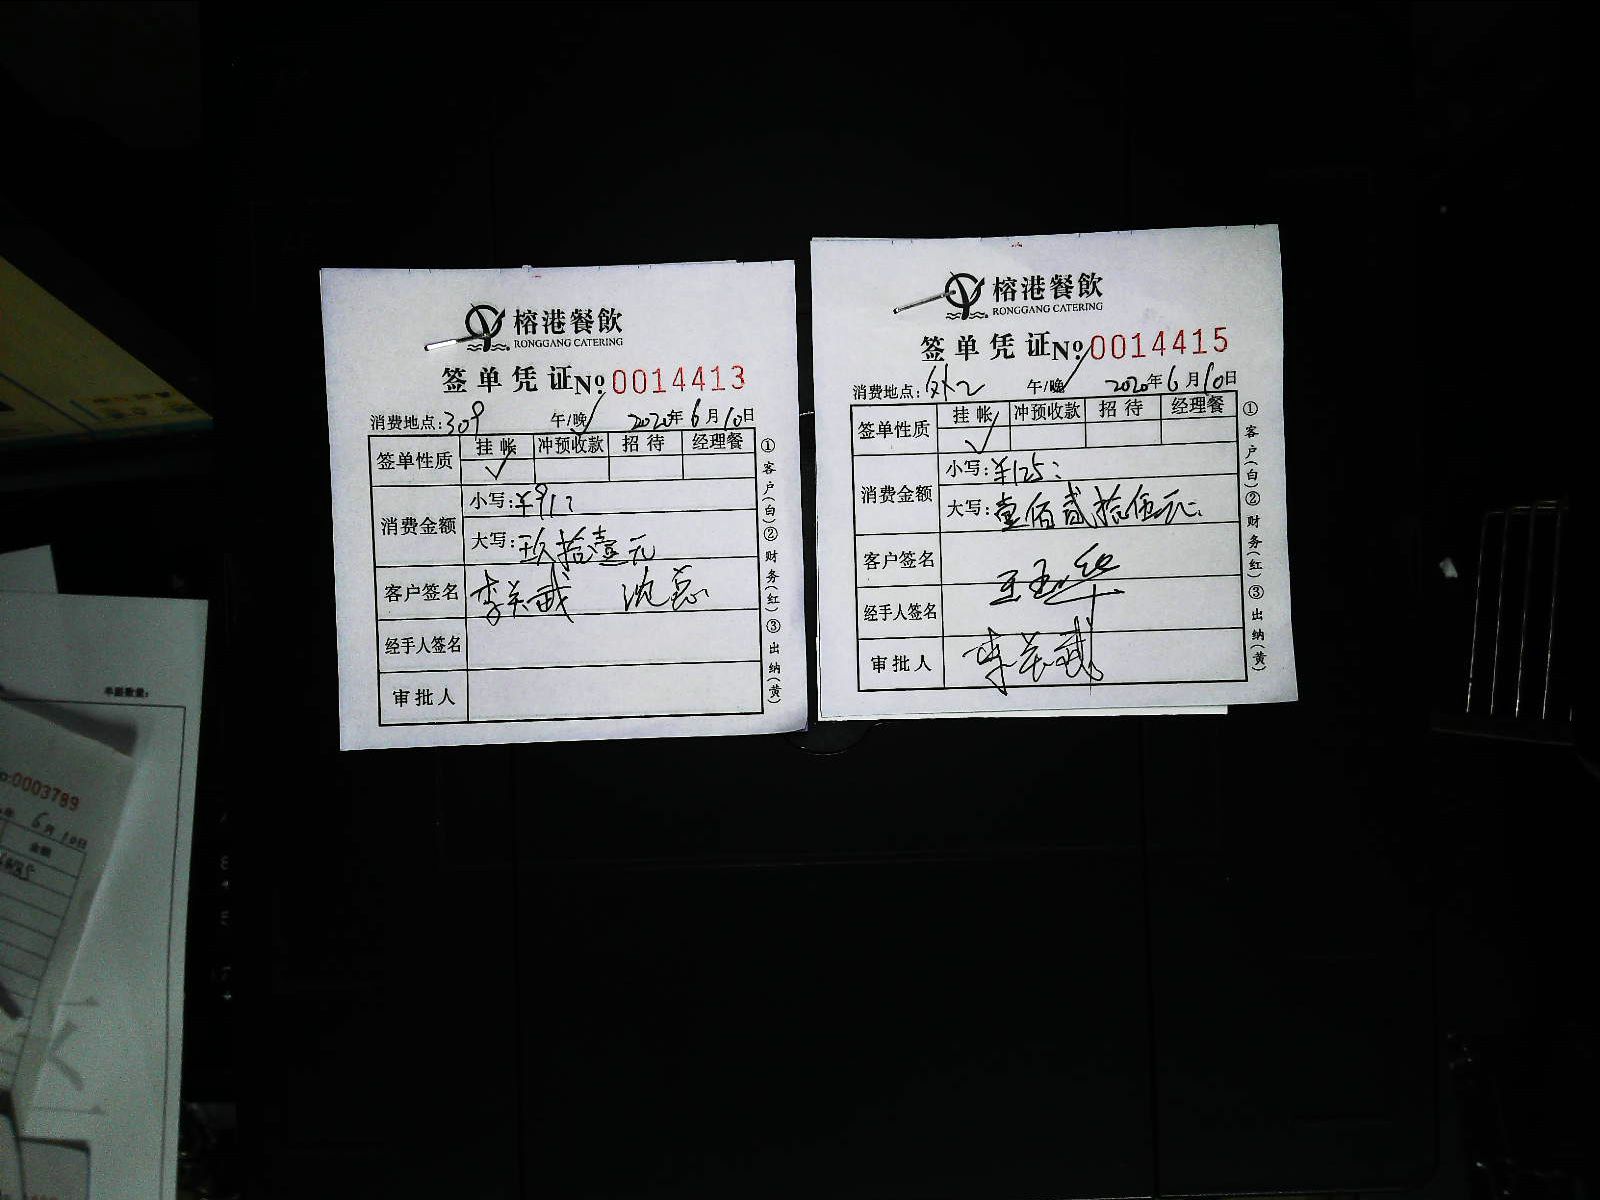 榕港餐飲
RONGGANG CATERING
签单凭证 No 0014413
消费地点:309 午/晚 2020年6月10日
签单性质 挂帐 冲预收款 招待 经理餐
✓
消费金额
小写:¥91
大写:玖拾壹元
客户签名
经手人签名
审批人
①客户(白)②财务(红)③出纳(黄)
榕港餐飲
RONGGANG CATERING
签单凭证 No 0014415
消费地点:外2 午/晚 2020年6月10日
签单性质 挂帐 冲预收款 招待 经理餐
✓
消费金额
小写:¥125:
大写:壹佰贰拾伍元
客户签名
经手人签名
审批人
①客户(白)②财务(红)③出纳(黄)
0003789
6月10日
金额